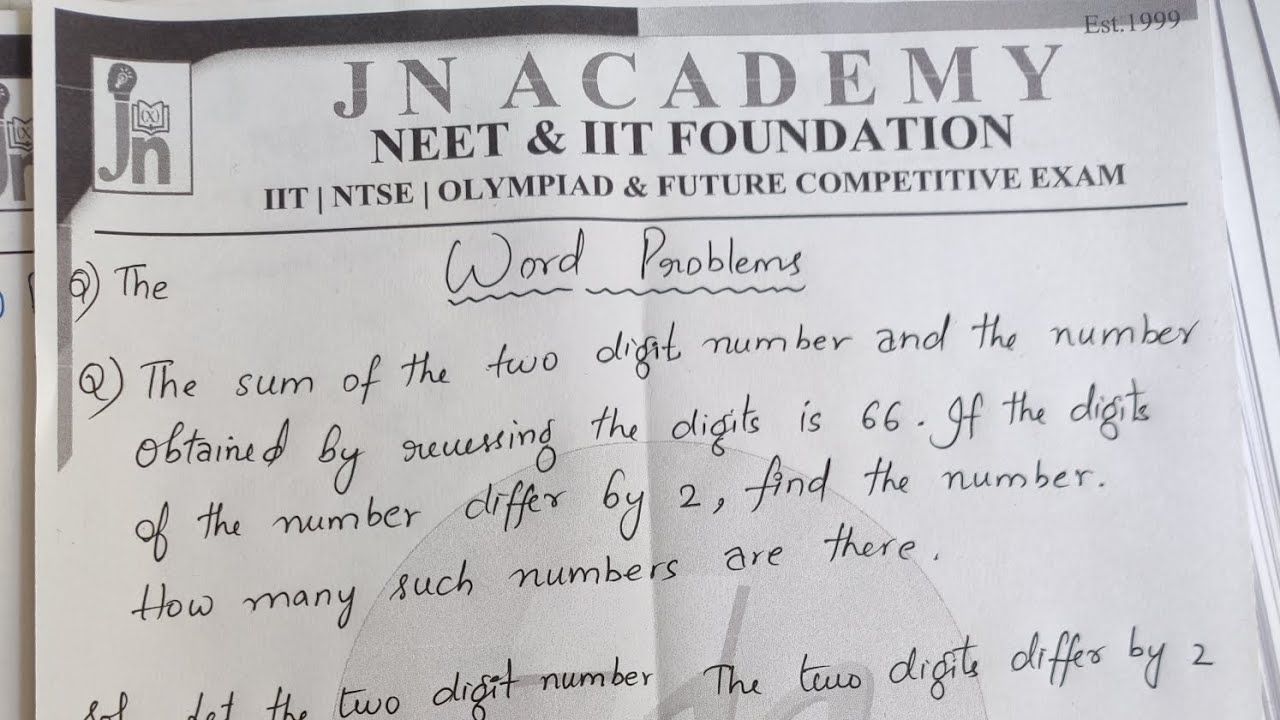 Est.1999
Jn
JN ACADEMY
NEET & IIT FOUNDATION
IIT | NTSE | OLYMPIAD & FUTURE COMPETITIVE EXAM
Word Problems
Q) The
Q) The sum of the two digit number and the number
obtained by reversing the digits is 66. If the digits
of the number differ by 2, find the number.
How many such numbers are there.
Sol Let the two digit number The two digits differ by 2